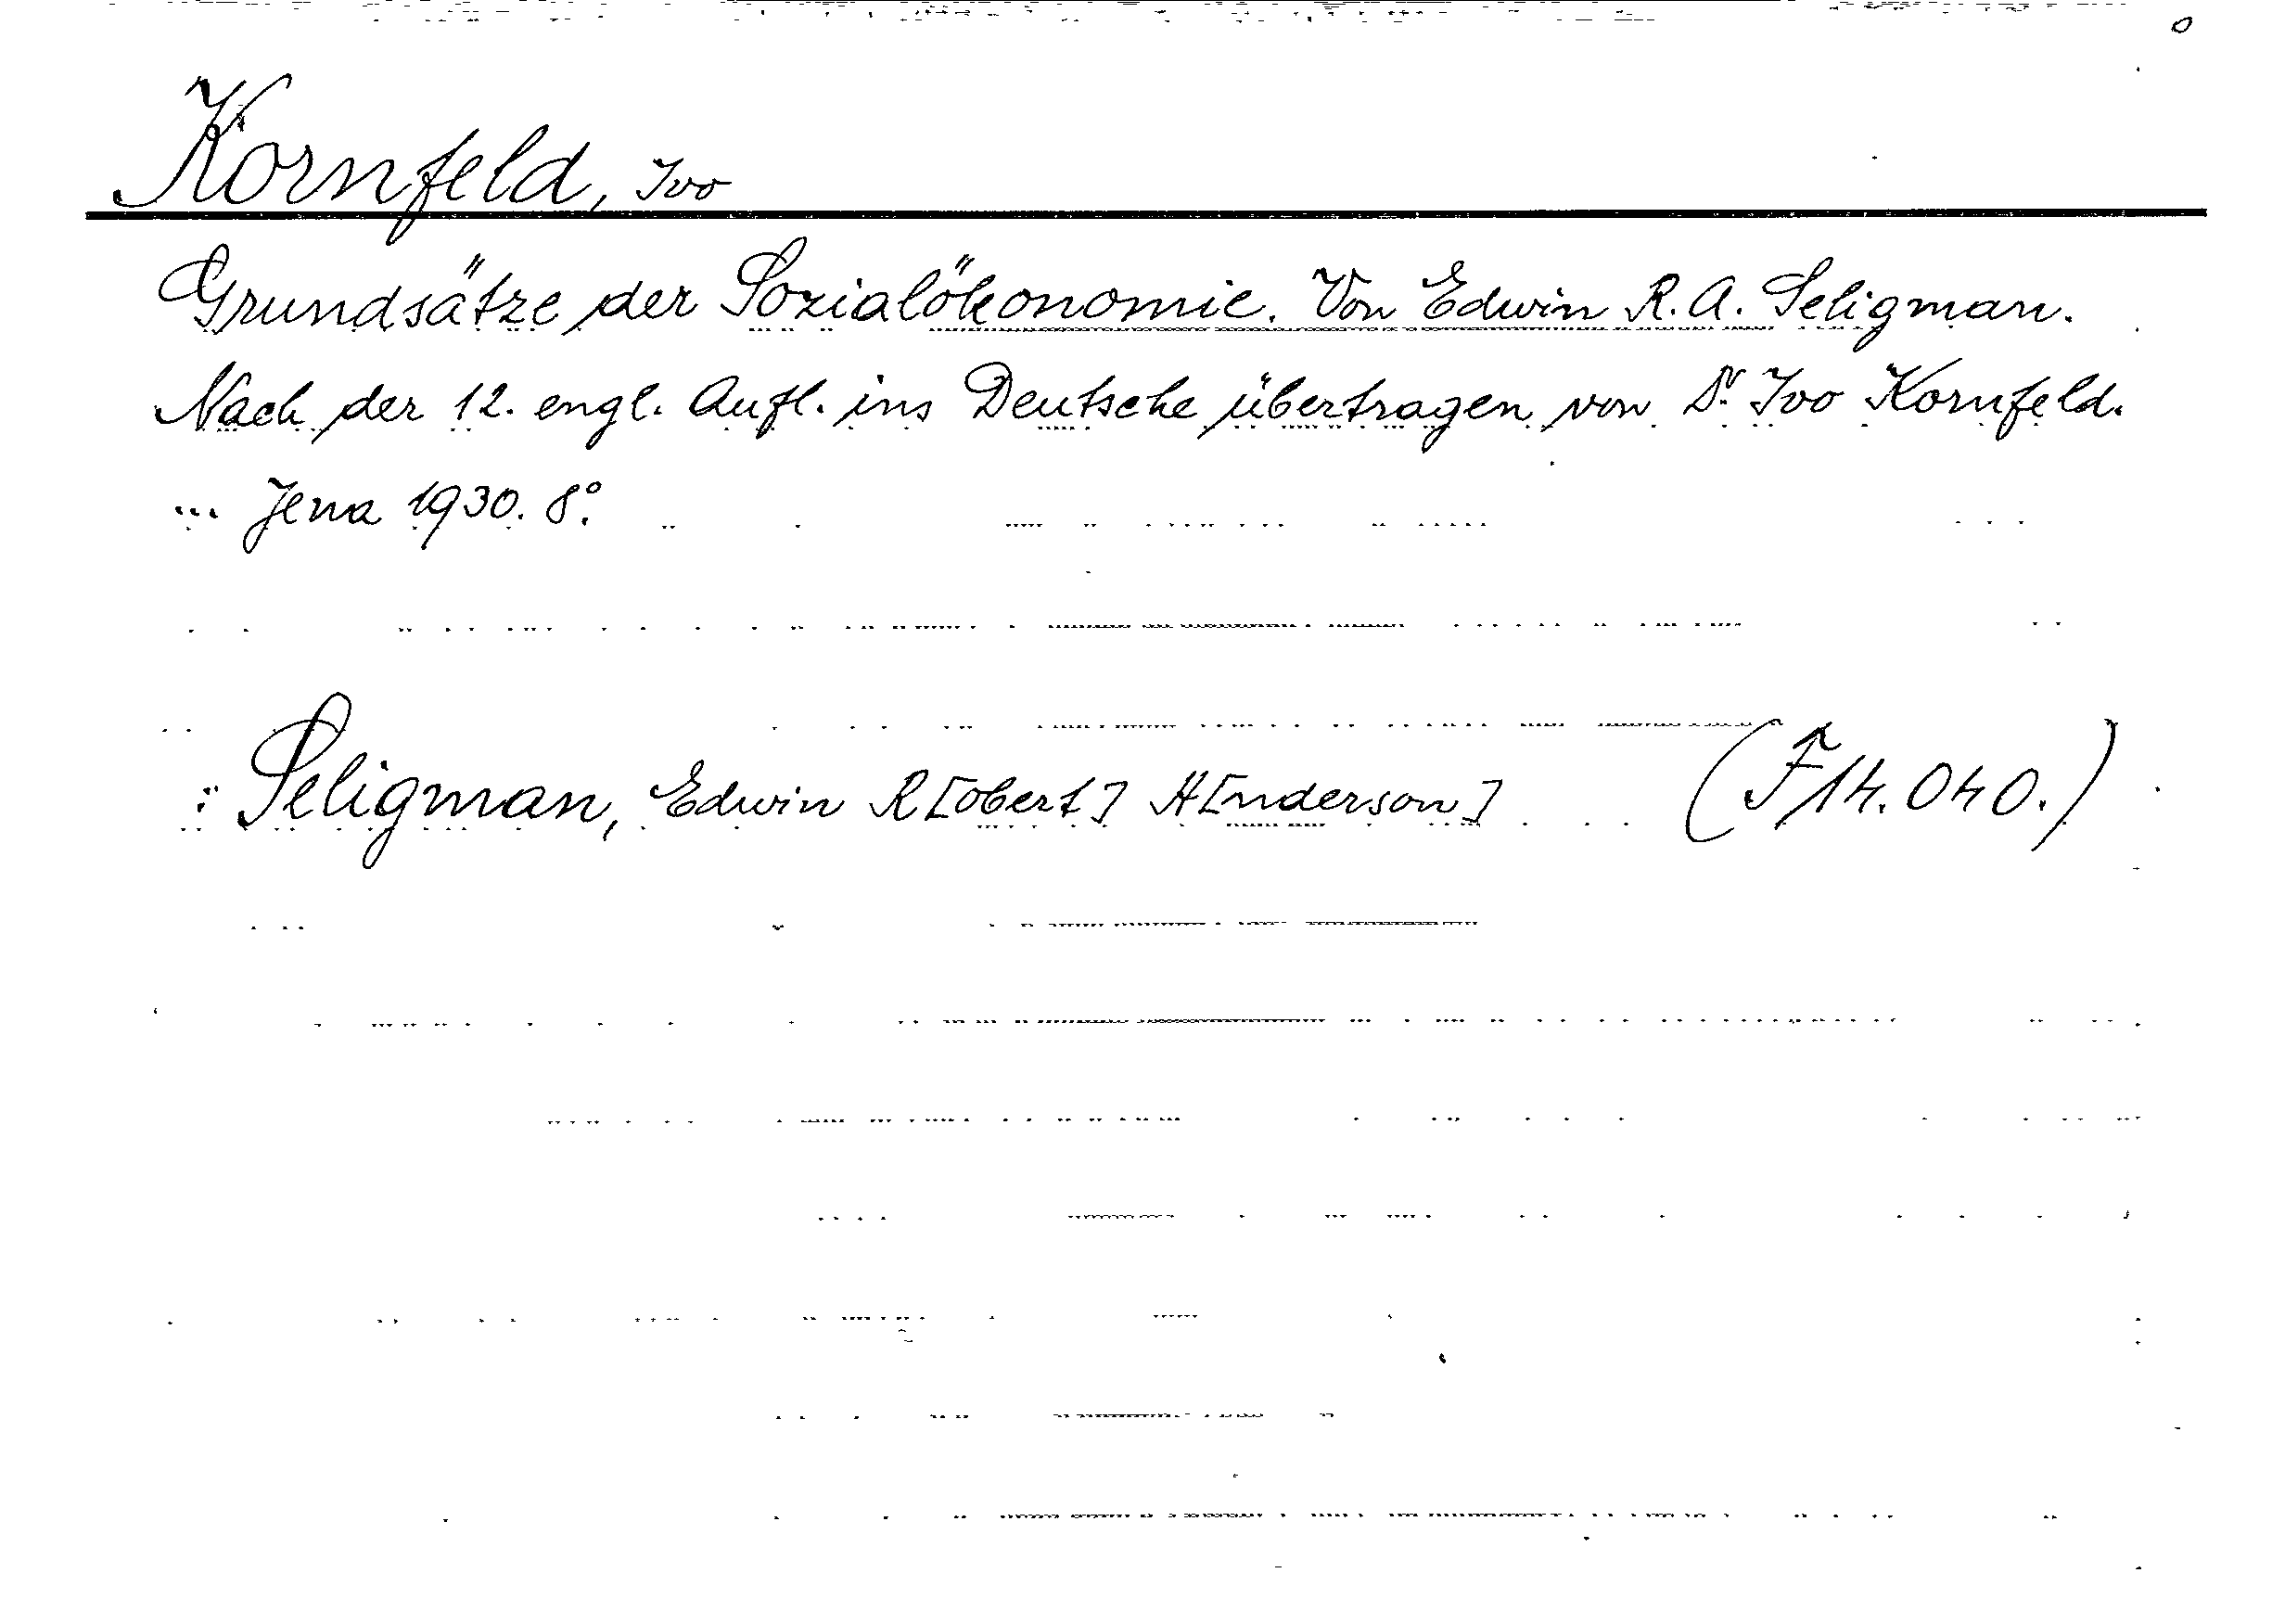 Kornfeld, Ivo
Grundsätze der Sozialökonomie. Von Edwin R. A. Seligman.
Nach der 12. engl. Aufl. ins Deutsche übertragen von Dr. Ivo Kornfeld.
... Jena 1930. 8°.
: Seligman, Edwin R[obert] A[nderson] (F 14.040.)